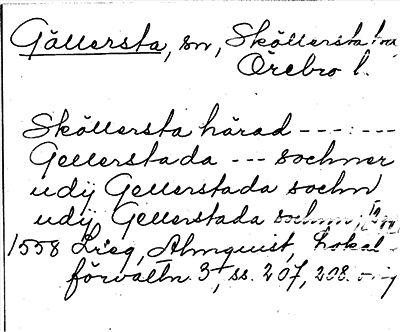 Gällersta, sn, Sköllersta hd
Örebro l.
Sköllersta härad --- : ---
Gellerstada --- sochner
udij Gellerstada sochn
udij Gellerstada sochnn,
1558 Lieg, Almquist, Lokal-
förvaltn. 3, ss. 207, 208.